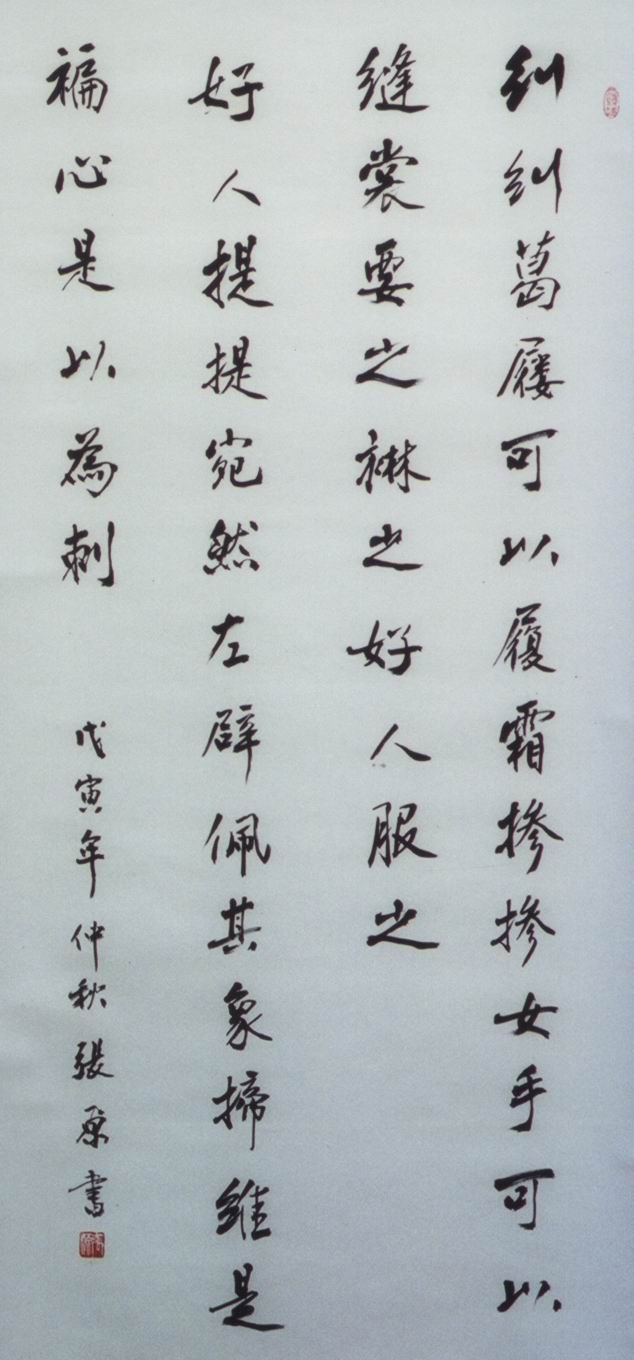 糾糾葛屨可以履霜摻摻女手可以
縫裳要之襋之好人服之
好人提提宛然左辟佩其象揥維是
褊心是以為刺
戊寅年仲秋張原書